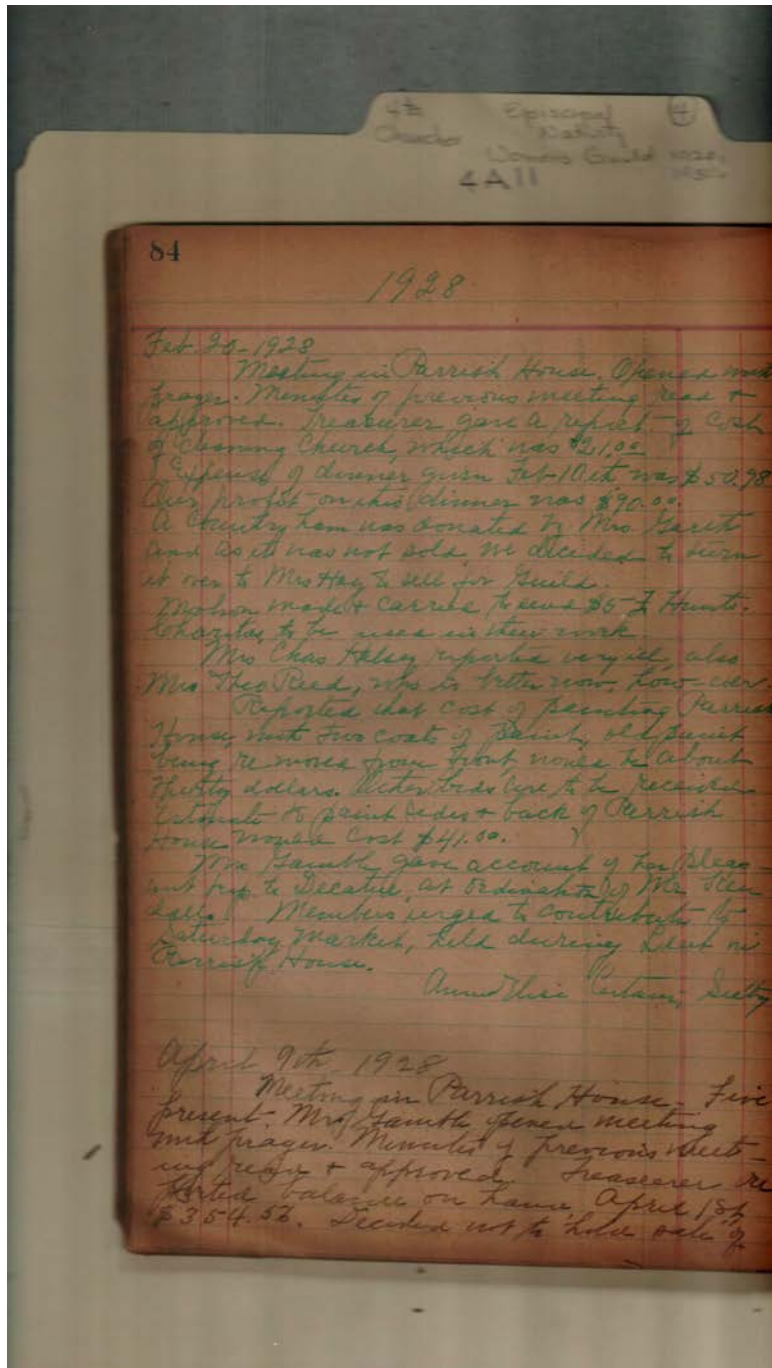 4th Episcopal 4
Nativity
Womens Guild
4A11
84
1928
Feb. 20-1928
Meeting in Parrish House. Opened with
prayer. Minutes of previous meeting read +
approved. Treasurer gave a report of cost
of cleaning Church, which was $21.00
Expense of dinner given Feb-10th, was $50.98
Our profit on this dinner was $90.00.
A Country ham was donated by Mrs.
and as it was not sold, we decided to turn
it over to Mrs Hay to sell for Guild.
Motion made + carried to send $5- to Hunts.
Charities, to be used in their work
Mrs Chas Halsey reported very ill, also
Mrs Theo Reed, who is better now, how-ever.
Reported that cost of painting Parrish
House, with two coats of paint, old paint
being removed from front, would be about
thirty dollars. Other bids are to be received
Estimate to paint sides + back of Parrish
House would cost $41.00.
Mrs Gamble gave account of her pleas-
ant trip to Decatur, at ordination of Mr.
Members urged to contribute to
Saturday Market, held during Lent in
Parrish House.
Secty
April 9th 1928
Meeting in Parrish House- Five
present. Mrs Gamble opened meeting
with prayer. Minutes of previous meet-
ing read + approved. Treasurer re
ported balance on hand, April 1st,
Decided not to hold sale of